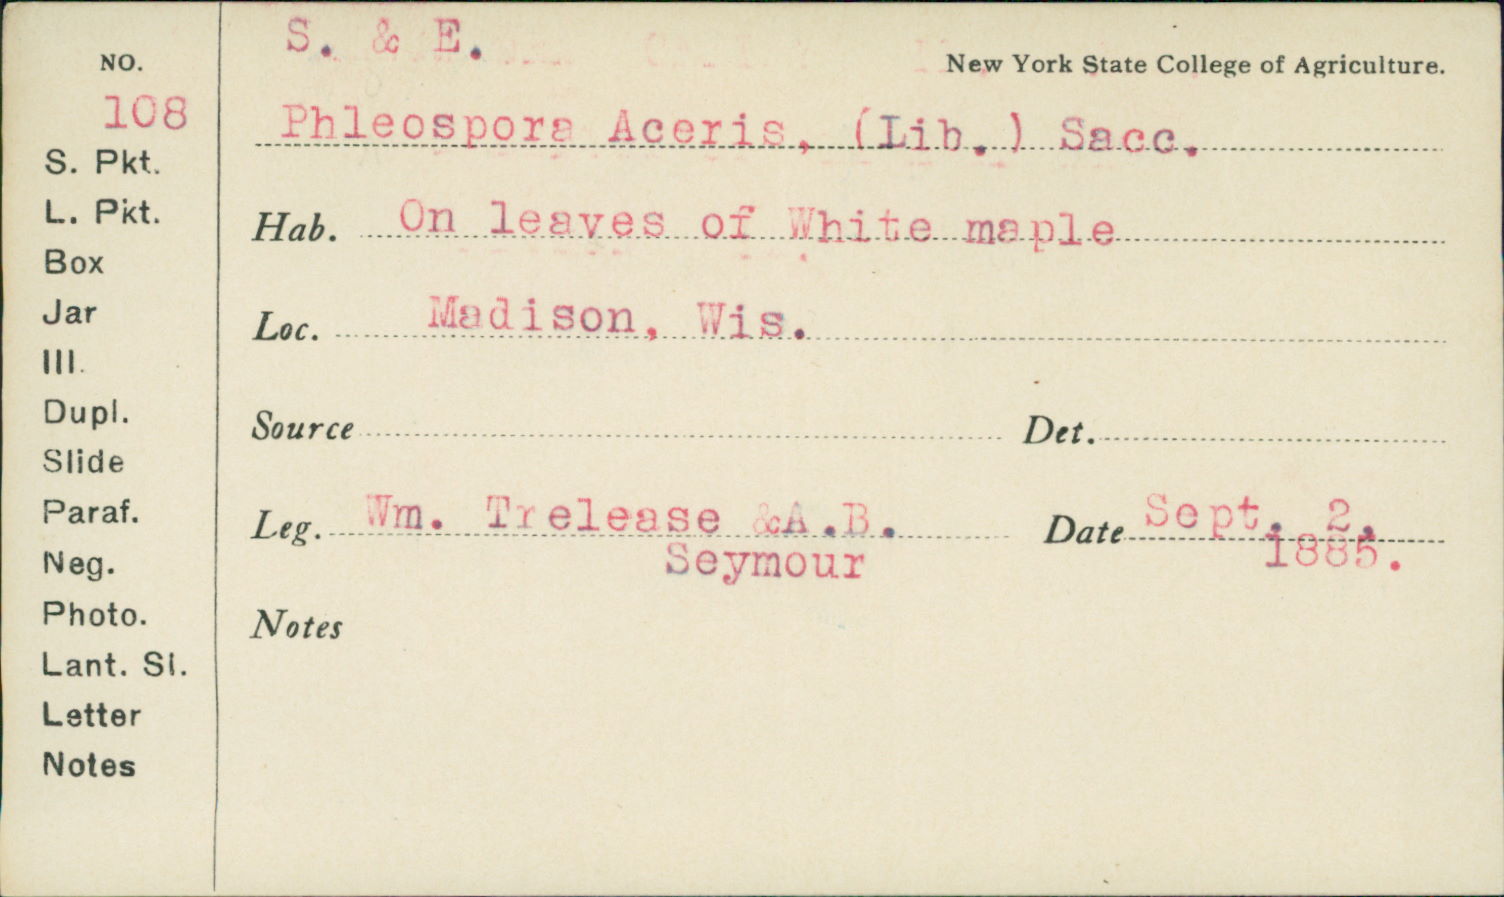 S. & E.
NO.
New York State College of Agriculture.
108
Phleospora Aceris, (Lib.) Sacc.
S. Pkt.
L. Pkt.
Hab. On leaves of White maple
Box
Jar
Loc. Madison, Wis.
Ill.
Dupl.
Source Det.
Slide
Paraf.
Leg. Wm. Trelease &A.B. Seymour
Date Sept. 2, 1885.
Neg.
Photo.
Notes
Lant. Sl.
Letter
Notes